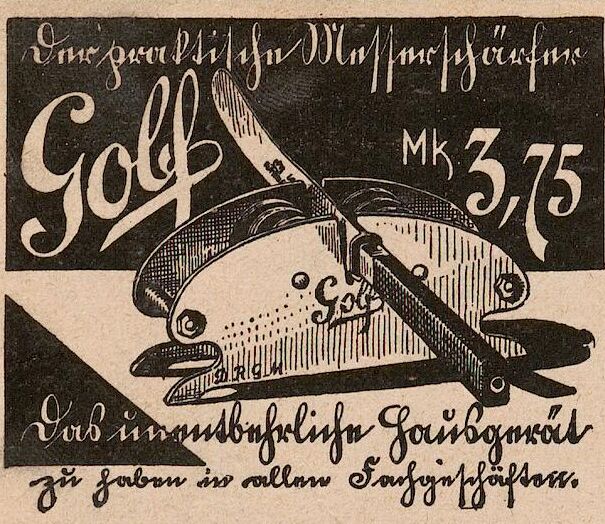 Der praktische Messerschärfer
Golf
Mk 3,75
Golf
D.R.G.M
Das unentbehrliche Hausgerät
zu haben in allen Fachgeschäften.